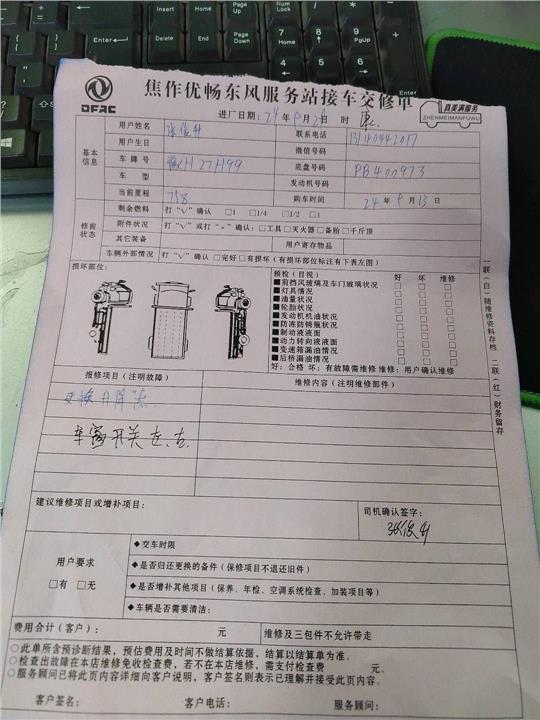 Home
Page Up
Delete
End
Page Down
Enter
7 Home
8
9 PgUp
4
5
6
1 End
2
3 PgDn
0
DFAC
焦作优畅东风服务站接车交修单
真美满服务
ZHENMEIMANFUWU
进厂日期：24年9月2日 时
基本信息
用户姓名 张俊升 联系电话
用户生日 微信号码
车牌号 豫H27H99 底盘号码 PB400973
车型 发动机号码
当前里程 758 购车时间 24年9月13日
修前状态
剩余燃料 打“√”确认 □1 □1/4 □1/2 □1
附件状况 打“√”或打“×”确认：□工具□灭火器□备胎□千斤顶
其它装备 用户寄存物品
车辆外部情况 打“√”确认 □完好□有损坏（有损坏部位标注有下表左图）
损坏部位：
预检（目视） 好 坏 维修
■前挡风玻璃及车门玻璃状况 □ □ □
■灯具情况 □ □ □
■油量状况 □ □ □
■轮胎状况 □ □ □
■发动机机油状况 □ □ □
■防冻防锈瓶状况 □ □ □
■制动液液面 □ □ □
■动力转向液液面 □ □ □
■变速箱漏油情况 □ □ □
■后桥漏油情况 □ □ □
好：合格 坏：有故障需维修 维修：用户确认维修
报修项目（注明故障） 维修内容（注明维修部件）
更换升降器
车窗开关左.右.
建议维修项目或增补项目：
司机确认签字：
张俊升
用户要求
□有 □无
◆交车时限
◆是否归还更换的备件（保修项目不退还旧件）
◆是否增补其他项目（保养、年检、空调系统检查、加装项目等）
◆车辆是否需要清洁：
费用合计（客户）： 元 维修及三包件不允许带走
○此单所含预诊断结果，预估费用及时间不做结算依据，结算以结算单为准。
○检查出故障在本店维修免收检查费，若不在本店维修，需支付检查费 元。
○服务顾问已将此页内容详细向客户说明，客户签名则表示已理解并接受此页内容。
客户签名： 客户电话： 服务顾问：
一联（白）随维修资料存档
二联（红）财务留存